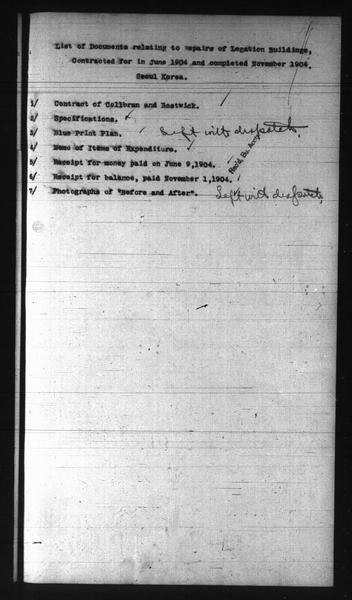 List of Documents relating to repairs of Legation Buildings,
Contracted for in June 1904 and completed November 1904.
Seoul Korea.
1/ Contract of Collbran and Bostwick.
2/ Specifications.
3/ Blue Print Plan. Left with despatch.
4/ Memo of Items of Expenditure.
5/ Receipt for money paid on June 9,1904.
6/ Receipt for balance, paid November 1,1904.
Rec'd Bu. Accts
7/ Photographs of "Before and After". Left with despatch.